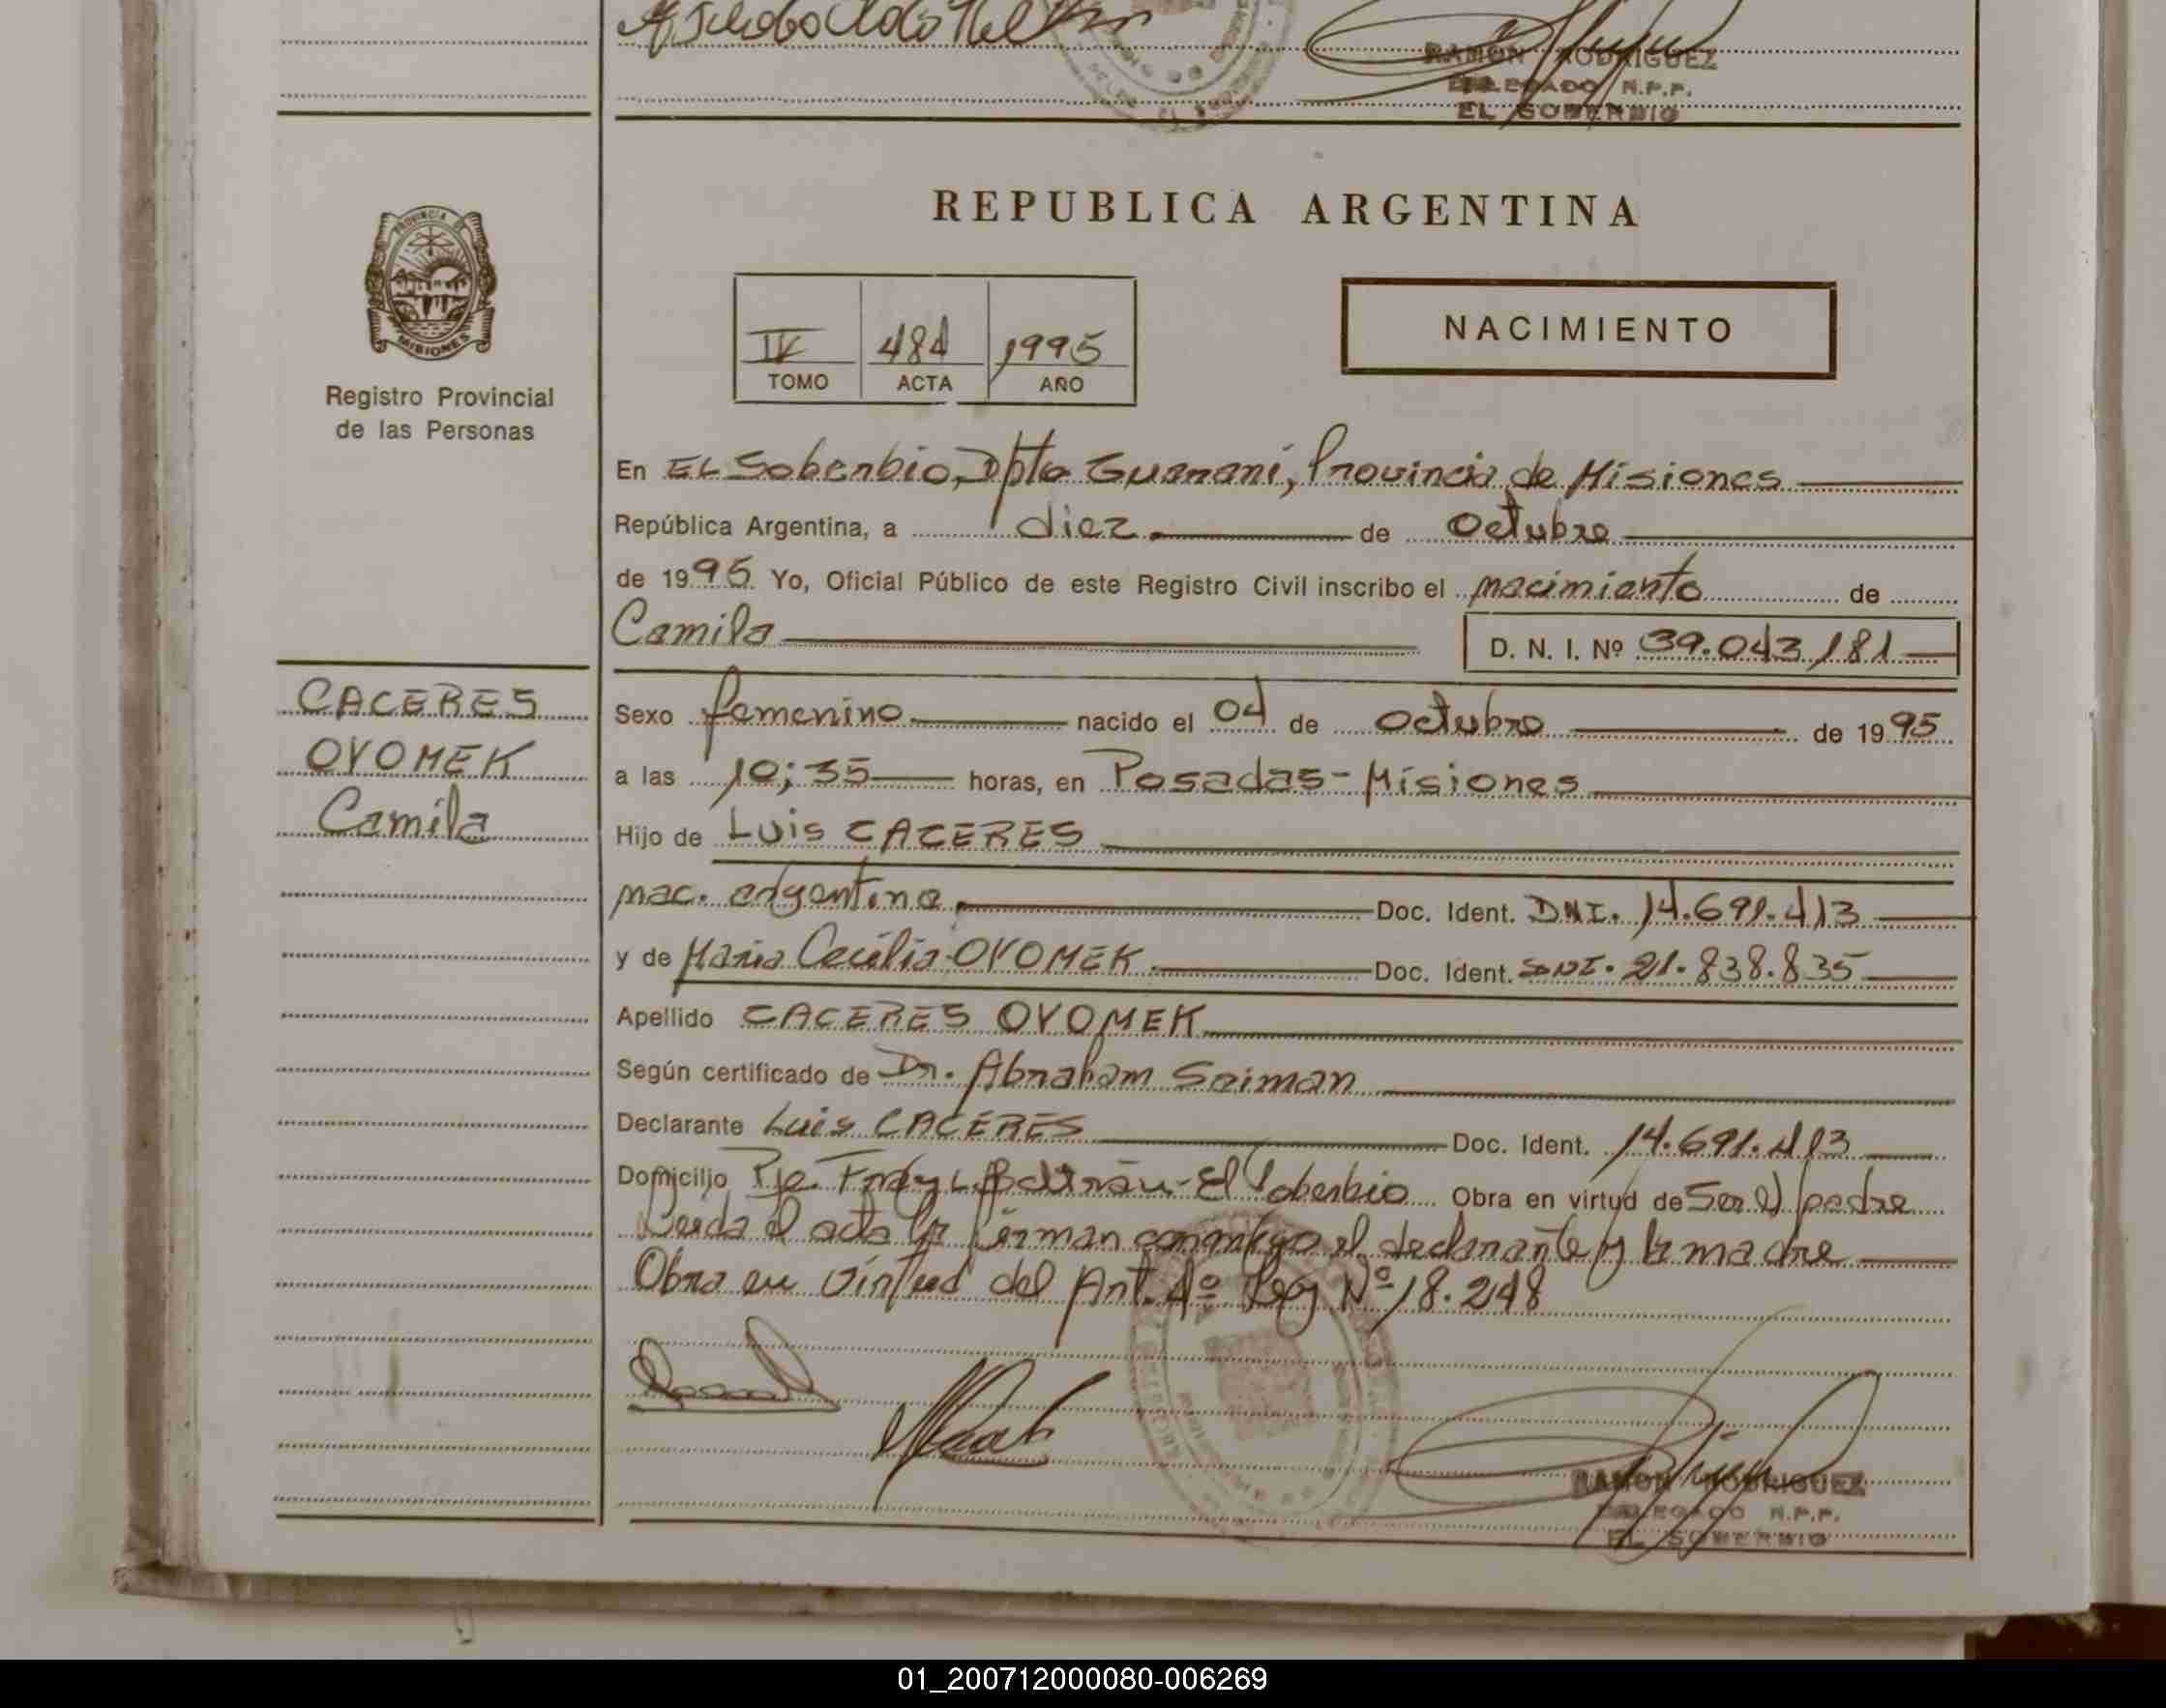 RAMON RODRIGUEZ
DELEGADO R.P.P.
EL SOBERBIO
REPUBLICA ARGENTINA
PROVINCIA DE
MISIONES
Registro Provincial
de las Personas
IV 484 1995
TOMO ACTA AÑO
NACIMIENTO
En EL Soberbio, Dpto Guarani, Provincia de Misiones
República Argentina, a diez de Octubre
de 1995 Yo, Oficial Público de este Registro Civil inscribo el nacimiento de
Camila D. N. I. Nº 39.043.181
CACERES
OVOMEK
Camila
Sexo femenino nacido el 04 de Octubre de 1995
a las 10:35 horas, en Posadas-Misiones
Hijo de Luis CACERES
nac. argentina Doc. Ident. DNI. 14.691.413
y de Maria Cecilia OVOMEK Doc. Ident. DNI. 21.838.835
Apellido CACERES OVOMEK
Según certificado de Dr. Abraham Saiman
Declarante Luis CACERES Doc. Ident. 14.691.413
Domicilio Pje. Fray L. Beltrán - El Soberbio Obra en virtud de Ser el padre
Leida el acta la firman conmigo el declarante y la madre
Obra en virtud del Art. 4º Ley Nº 18.248
RAMON RODRIGUEZ
DELEGADO R.P.P.
EL SOBERBIO
01_200712000080-006269